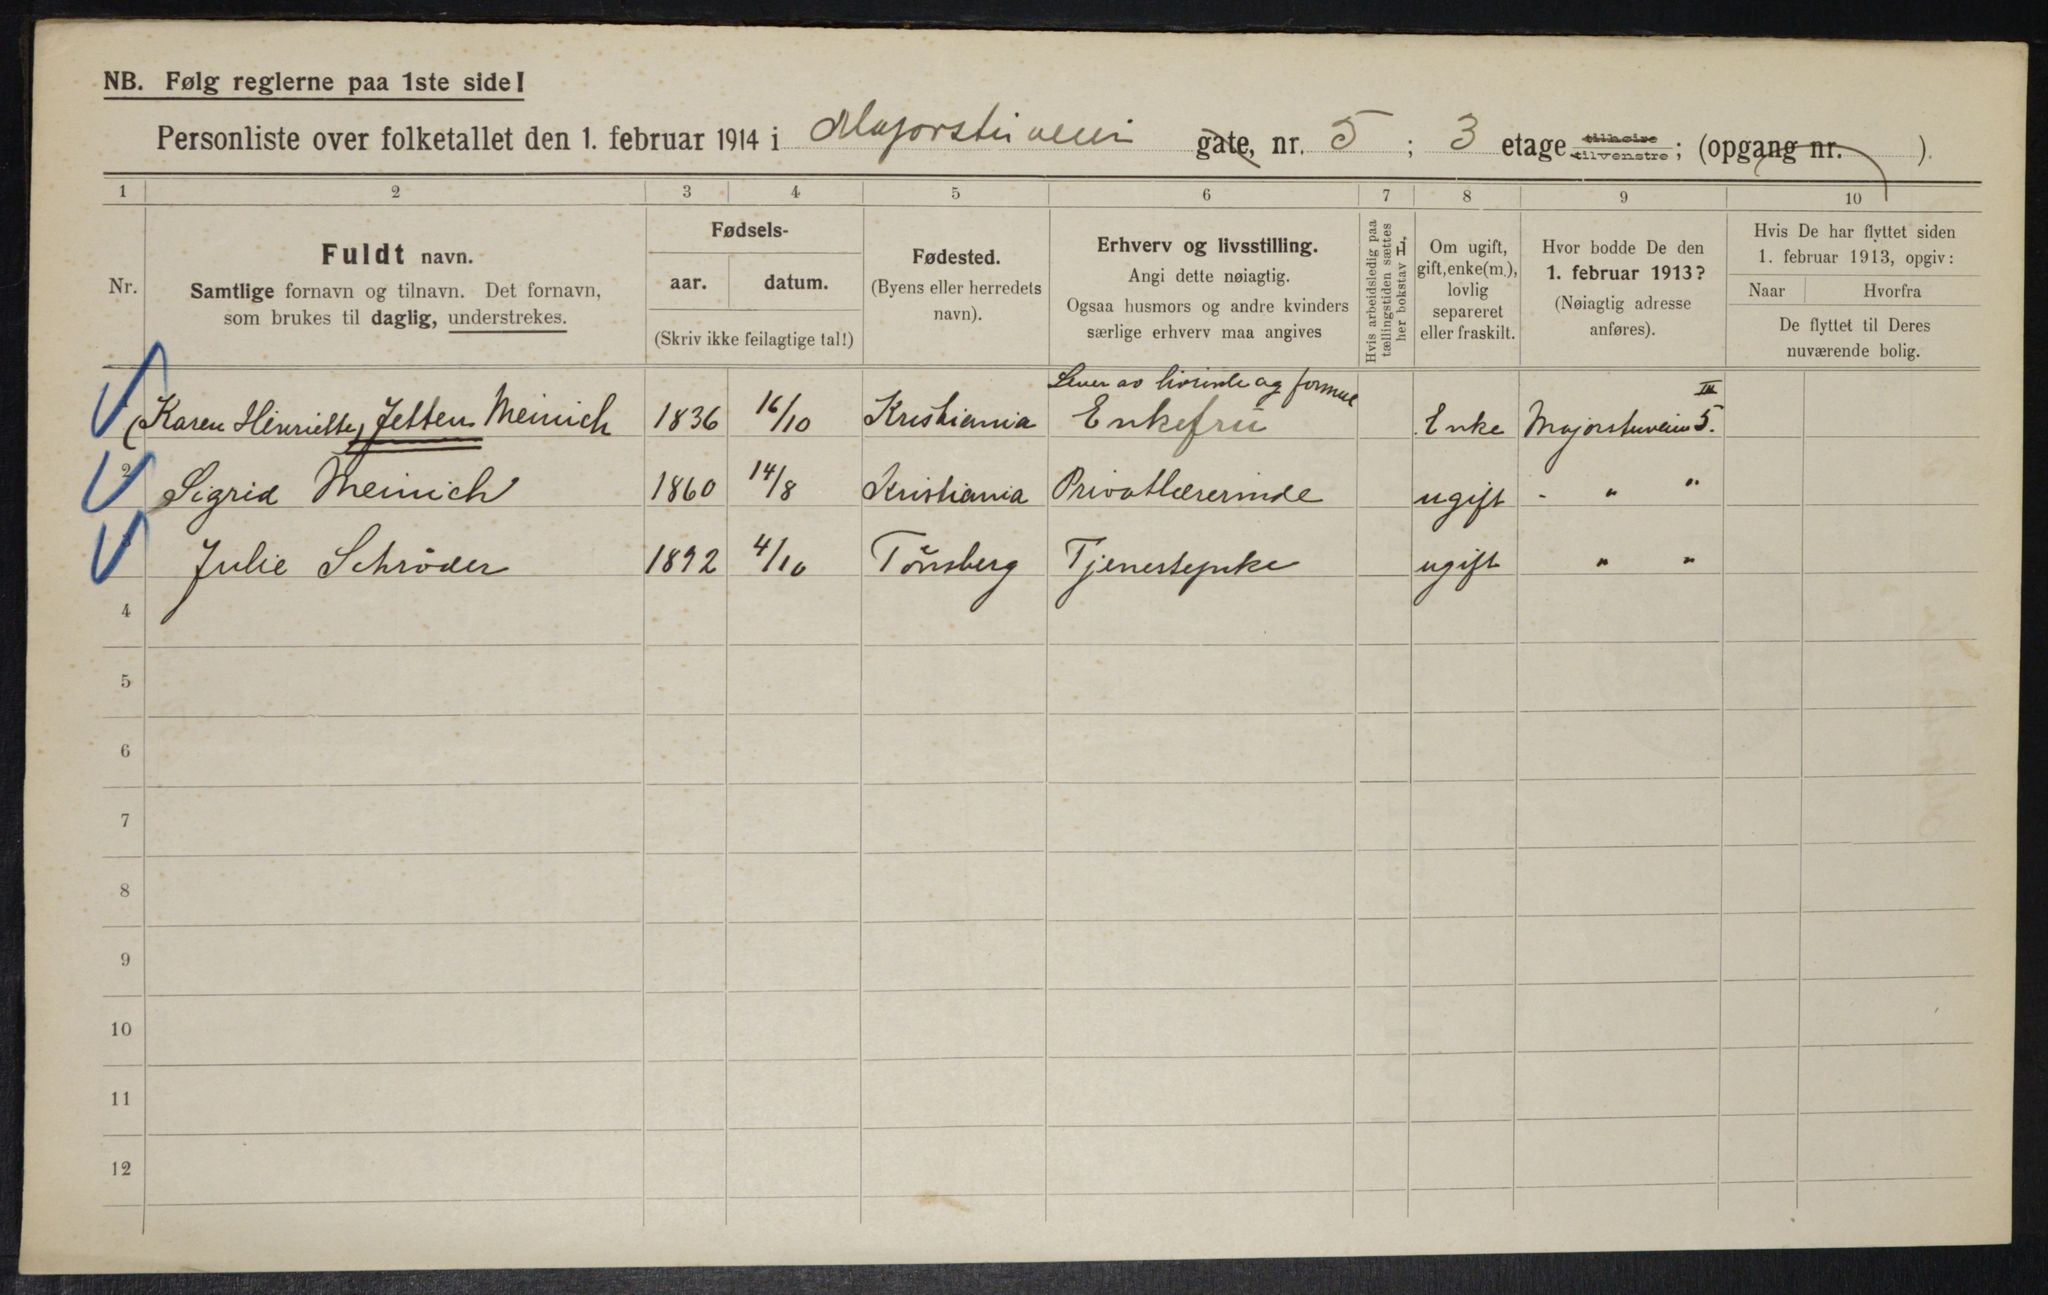 NB. Følg reglerne paa 1ste side!
Personliste over folketallet den 1. februar 1914 i Majorstuveien gate, nr. 5 ; 3 etage tilhøire tilvenstre ; (opgang nr. ).
1 2 3 4 5 6 7 8 9 10
Nr.
Fuldt navn.
Samtlige fornavn og tilnavn. Det fornavn,
som brukes til daglig, understrekes.
Fødsels-
aar. datum.
(Skriv ikke feilagtige tal!)
Fødested.
(Byens eller herredets
navn).
Erhverv og livsstilling.
Angi dette nøiagtig.
Ogsaa husmors og andre kvinders
særlige erhverv maa angives
Hvis arbeidsledig paa
tællingstiden sættes
her bokstav L.
Om ugift,
gift, enke(m.),
lovlig
separeret
eller fraskilt.
Hvor bodde De den
1. februar 1913?
(Nøiagtig adresse
anføres).
Hvis De har flyttet siden
1. februar 1913, opgiv:
Naar Hvorfra
De flyttet til Deres
nuværende bolig.
Lever av livrente og formue
(Karen Henriette) Jetten Meinich 1836 16/10 Kristiania Enkefru Enke Majorstuveien 5. III
2 Sigrid Meinich 1860 14/8 Kristiania Privatlærerinde ugift " " "
Julie Schrøder 1892 4/10 Tønsberg Tjenestepike ugift " "
4
5
6
7
8
9
10
11
12